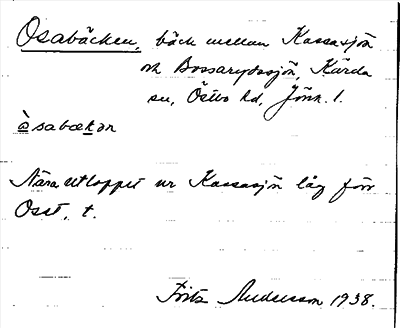 Osabäcken, bäck mellan Kassasjön
och Bossarydssjön, Kärda
sn, Östbo hd, Jönk. l.
òsabækən
Nära utloppet ur Kassasjön låg förr
Osst. t.
Fritz Andersson 1938.